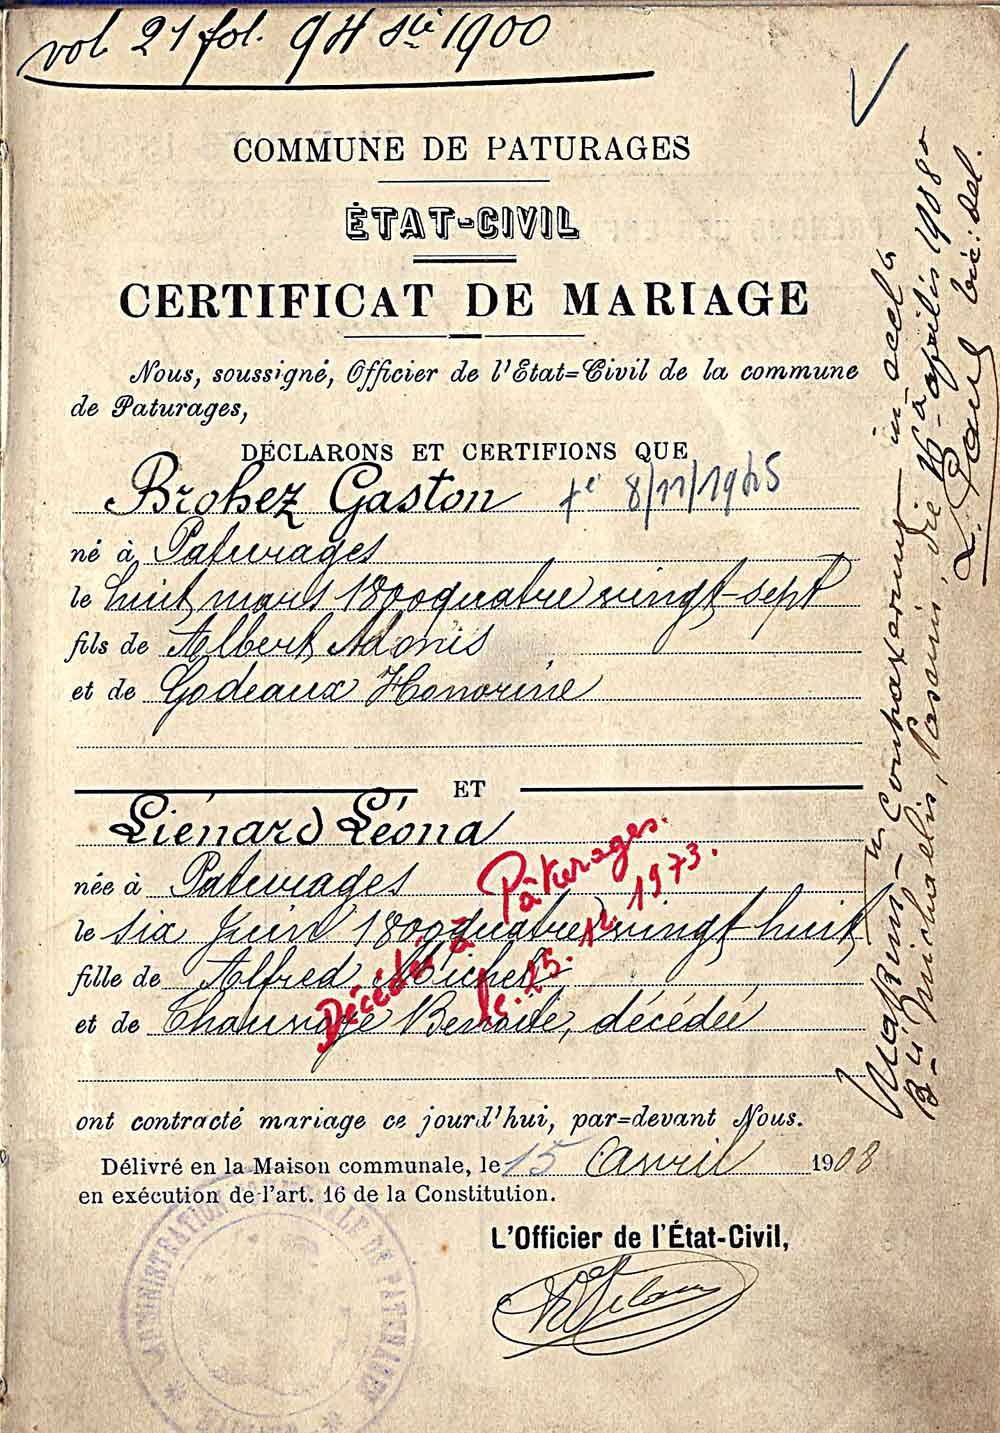 vol 21 fol. 94 sie 1900
COMMUNE DE PATURAGES
ÉTAT-CIVIL
CERTIFICAT DE MARIAGE
Nous, soussigné, Officier de l'État=Civil de la commune
de Paturages,
DÉCLARONS ET CERTIFIONS QUE
Brohez Gaston 8/11/1945
né à Paturages
le huit mars 1800quatre vingt-sept
fils de Albert Adonis
et de Godeaux Honorine
ET
Liénard Léona
née à Paturages
le six Juin 1800quatre vingt-huit
fille de Alfred Michel
et de Benoite, décédée
Décédée à Pâturages.
le. 25. 12. 1973.
ont contracté mariage ce jourd'hui, par=devant Nous.
Délivré en la Maison communale, le 15 avril 1908
en exécution de l'art. 16 de la Constitution.
L'Officier de l'État-Civil,
ADMINISTRATION COMMUNALE DE PATURAGES
contraxerunt in
Michaelis, die 16a aprilis 1908